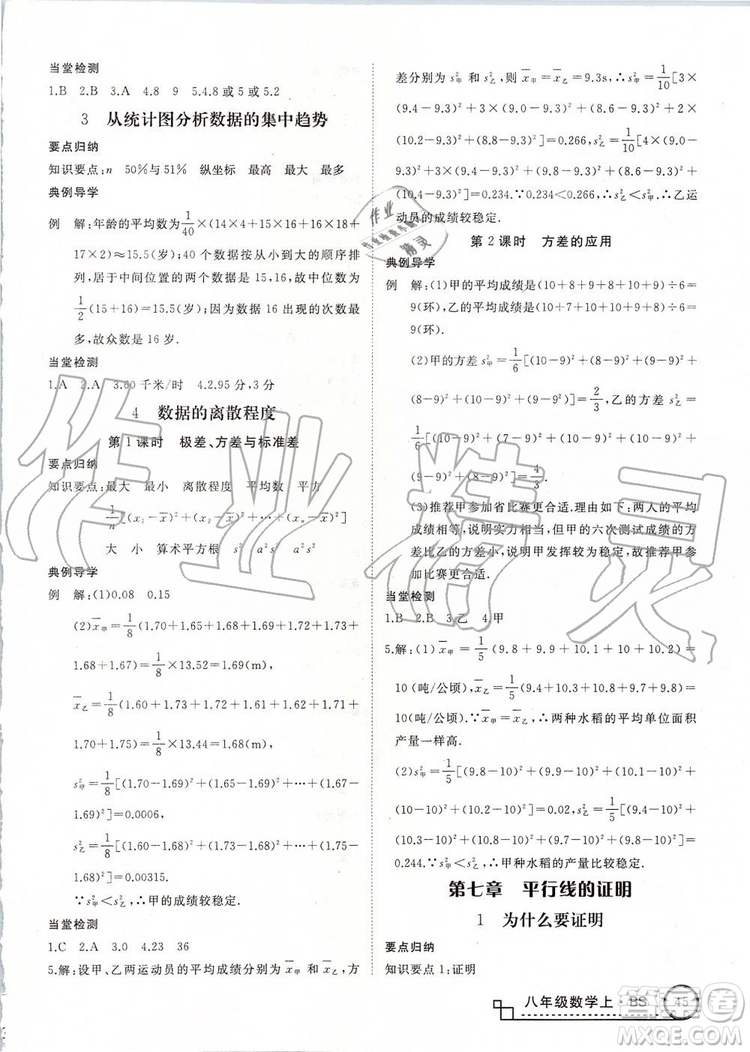 当堂检测
1.B 2.B 3.A 4.8 9 5.4.8或5或5.2
3 从统计图分析数据的集中趋势
要点归纳
知识要点:n 50%与51% 纵坐标 最高 最大 最多
典例导学
例 解:年龄的平均数为1/40×(14×4+15×16+16×18+
17×2)≈15.5(岁);40个数据按从小到大的顺序排
列,居于中间位置的两个数据是15,16,故中位数是
1/2(15+16)=15.5(岁);因为数据16出现的次数最
多,故众数为16岁.
当堂检测
1.A 2.A 3.60千米/时 4.2.95分,3分
4 数据的离散程度
第1课时 极差、方差与标准差
要点归纳
知识要点:最大 最小 离散程度 平均数 平方
1/n[(x₁-x̄)²+(x₂-x̄)²+…+(xₙ-x̄)²]
大 小 算术平方根 s² a²s² a²s²
典例导学
例 解:(1)0.08 0.15
(2)x̄甲=1/8(1.70+1.65+1.68+1.69+1.72+1.73+
1.68+1.67)=1/8×13.52=1.69(m),
x̄乙=1/8(1.60+1.73+1.72+1.61+1.62+1.71+
1.70+1.75)=1/8×13.44=1.68(m).
s²甲=1/8[(1.70-1.69)²+(1.65-1.69)²+…+(1.67-
1.69)²]=0.0006,
s²乙=1/8[(1.60-1.68)²+(1.73-1.68)²+…+(1.75-
1.68)²]=0.00315.
∵s²甲<s²乙,∴甲的成绩较稳定.
当堂检测
1.C 2.A 3.0 4.23 36
5.解:设甲、乙两运动员的平均成绩分别为x̄甲和x̄乙,方
差分别为s²甲和s²乙,则x̄甲=x̄乙=9.3s,∴s²甲=1/10[3×
(9.4-9.3)²+(8.6-9.3)²+
(10.2-9.3)²]=0.266,s²乙=1/10[4×
(9.7-9.3)²+(8.6-9.3)²+3×
(10.4-9.3)²]=0.234.∵s²甲>s²乙,∴乙运
动员的成绩较稳定.
第2课时 方差的应用
典例导学
例 解:(1)甲的平均成绩是(10+8+9+8+10+9)÷6=
9(环),乙的平均成绩是(10+7+10+10+9+8)÷6=
9(环).
(2)甲的方差s²甲=1/6[(10-9)²+(8-9)²+(9-9)²+
(8-9)²+(10-9)²+(9-9)²]=2/3,乙的方差s²乙=
1/6[(10-9)²+(7-9)²+(10-9)²+(10-9)²+
(9-9)²+(8-9)²]=4/3.
(3)推荐甲参加省比赛更合适.理由如下:两人的平均
成绩相等,说明实力相当,但甲的六次测试成绩的方
差比乙的方差小,说明甲发挥较为稳定,故推荐甲参
加比赛更合适.
当堂检测
1.B 2.B 3.乙 4.甲
5.解:(1)x̄甲=1/5(9.8+9.9+10.1+10+10.2)=
10(吨/公顷),x̄乙=1/5(9.4+10.3+10.8+9.7+9.8)=
10(吨/公顷).∵x̄甲=x̄乙,∴两种水稻的平均单位面积
产量一样高.
(2)s²甲=1/5[(9.8-10)²+(9.9-10)²+(10.1-10)²+
(10-10)²+(10.2-10)²]=0.02,s²乙=1/5[(9.4-10)²+
(10.3-10)²+(10.8-10)²+(9.7-10)²+(9.8-10)²]=
0.244.∵s²甲<s²乙,∴甲种水稻的产量比较稳定.
第七章 平行线的证明
1 为什么要证明
要点归纳
知识要点1:证明
八年级数学上·BS 45
作业精灵
MXQE.COM